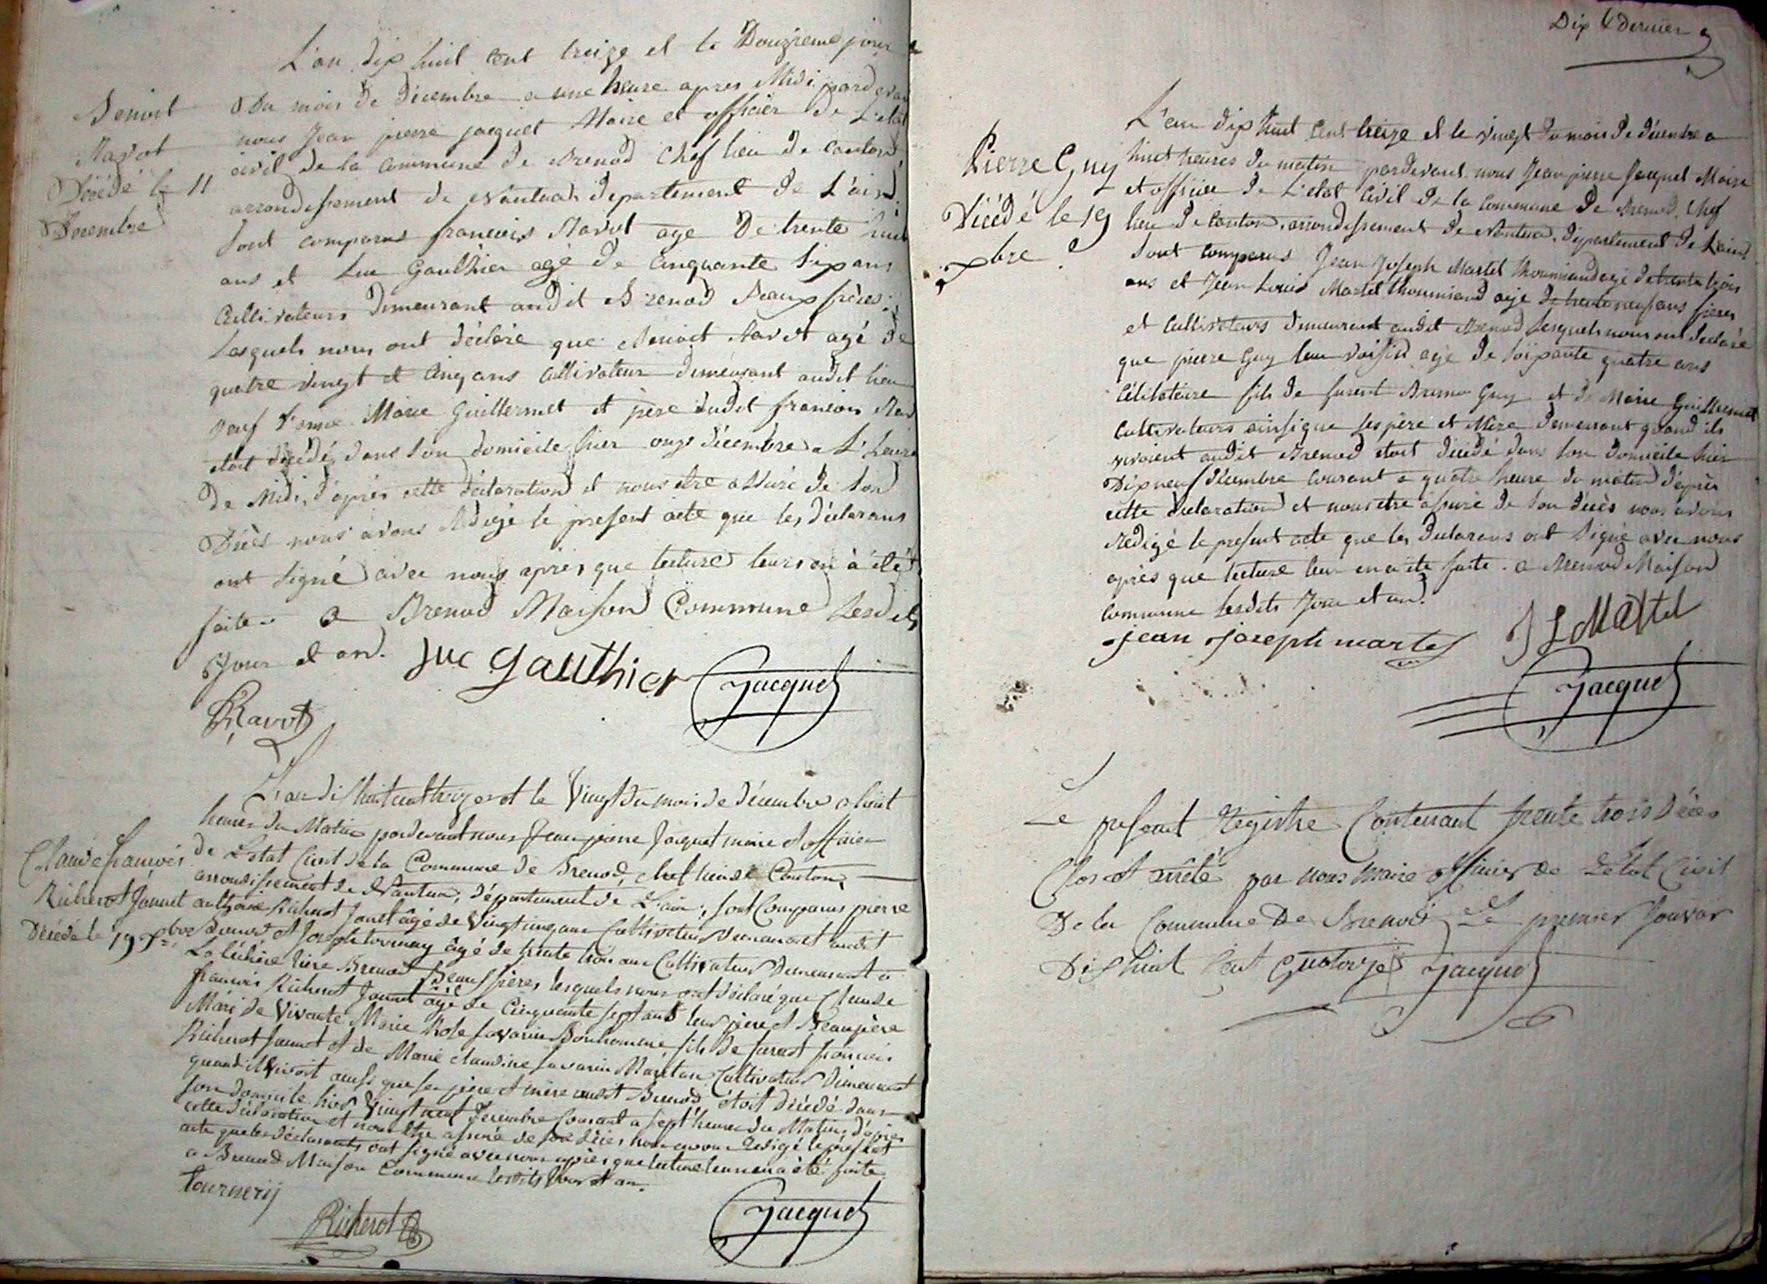 L'an dix huit cent treize et le Douzieme jour
Benoit
Ravot
Décédé le 11
Decembre
Du mois de décembre a une heure apres Midi pardevant
nous Jean pierre jacquet Maire et officier de L'etat
civil de la commune de Brenod chef lieu de canton
arrondissement de Nantua departement de L'ain,
sont comparus francois Ravot age De trente huit
ans et Luc Gauthier agé de Cinquante six ans
Cultivateurs demeurant audit Brenod Beaux frères
Lesquels nous ont déclaré que Benoit Ravot agé de
quatre vingt et cinq ans Cultivateur demeurant audit lieu
veuf Marie Guillermet et père dudit francois Rav
etoit décédé dans son domicile hier onze décembre a L'heure
de Midi, d'après cette déclaration et nous etre assuré de son
Décès nous avons Rédigé le present acte que les déclarans
ont signé avec nous après que lecture leur en à été
faite a Brenod Maison Commune Lesdits
Jour et an. luc gauthier Jacquet
Ravot
L'an dix huit cent treize et le Vingt du mois de décembre a huit
heures du Matin pardevant nous Jean pierre Jacquet maire et officier
Claude francois
Richerot Jannet
Décédé le 19 Xbre
de L'etat Civil de la Commune de Brenod, chef lieu de Canton,
arrondissement de Nantua, département de L'ain, sont Comparus pierre
anthoine Richerot Janet âgé de Vingt cinq ans Cultivateur demeurant audit
Brenod et Joseph tournery âgé de trente trois ans Cultivateur Demeurant a
La léchère rière Brenod Beaux frères lesquels nous ont déclaré que Claude
francois Richerot Jannet âgé de Cinquante sept ans leur père et Beaupère
Mari de Vivante Marie Rose savarin Bonhomme, fils de furent francois
Richerot Jannet et de Marie claudine savarin Maretan Cultivateur Demeurant
quand il vivoit ainsi que ses père et mère audit Brenod étoit décédé dans
son domicile hier Vingt neuf decembre Courant a sept heures du Matin, d'après
cette déclaration et nous etre assuré de son décès nous avons Rédigé le present
acte que les déclarants ont signé avec nous après que lecture leur en a été faite
a Brenod Maison Commune lesdits Jour et an.
tournerij
Richerot Jacquet
Dix & dernier
L'an dix huit cent treize et le vingt du mois de décembre a
Pierre Guy
Décédé le 19
xbre
huit heures du matin pardevant nous Jean pierre Jacquet Maire
et officier de L'etat Civil de la Commune de Brenod, chef
lieu de Canton, arrondissement de Nantua, département de L'ain
sont comparus Jean Joseph Martel thoumiand agé de trente trois
ans et Jean Louis Martel thoumiand agé de trente neuf ans freres
et Cultivateurs demeurant audit Brenod lesquels nous ont déclaré
que pierre Guy leur voisin age de soixante quatre ans
Célibataire fils de furent Bruno Guy et de Marie Guillermet
Cultivateurs ainsi que ses père et Mère demeurant quand ils
vivoient audit Brenod etoit décédé dans son domicile hier
Dix neuf décembre courant a quatre heure du matin d'après
cette déclaration et nous etre assuré de son décès nous avons
Rédigé le present acte que les Declarans ont Signé avec nous
après que lecture leur en a été faite. a Brenod Maison
commune lesdits Jour et an.
jean joseph martel J L Martel
Jacquet
Le present Registre Contenant trente trois décès
Clos et arrêté par nous Maire officier de L'etat Civil
De la Commune De Brenod Le premier Janvier
Dix huit Cent quatorze Jacquet